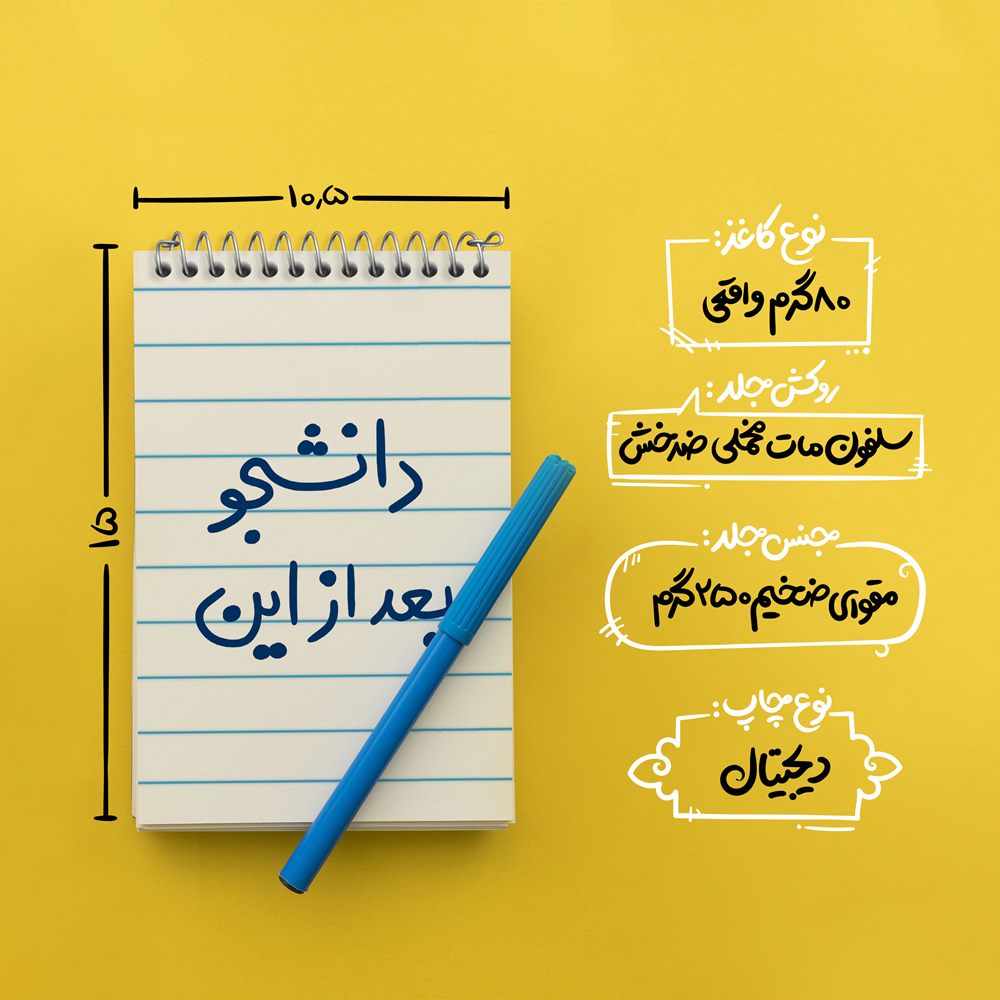 ۱۰٫۵
۱۵
دانشجو
بعد از این
نوع کاغذ:
۸۰ گرم واقعی
روکش جلد:
سلفون مات مخملی ضدخش
جنس جلد:
مقوای ضخیم ۲۵۰ گرم
نوع چاپ:
دیجیتال